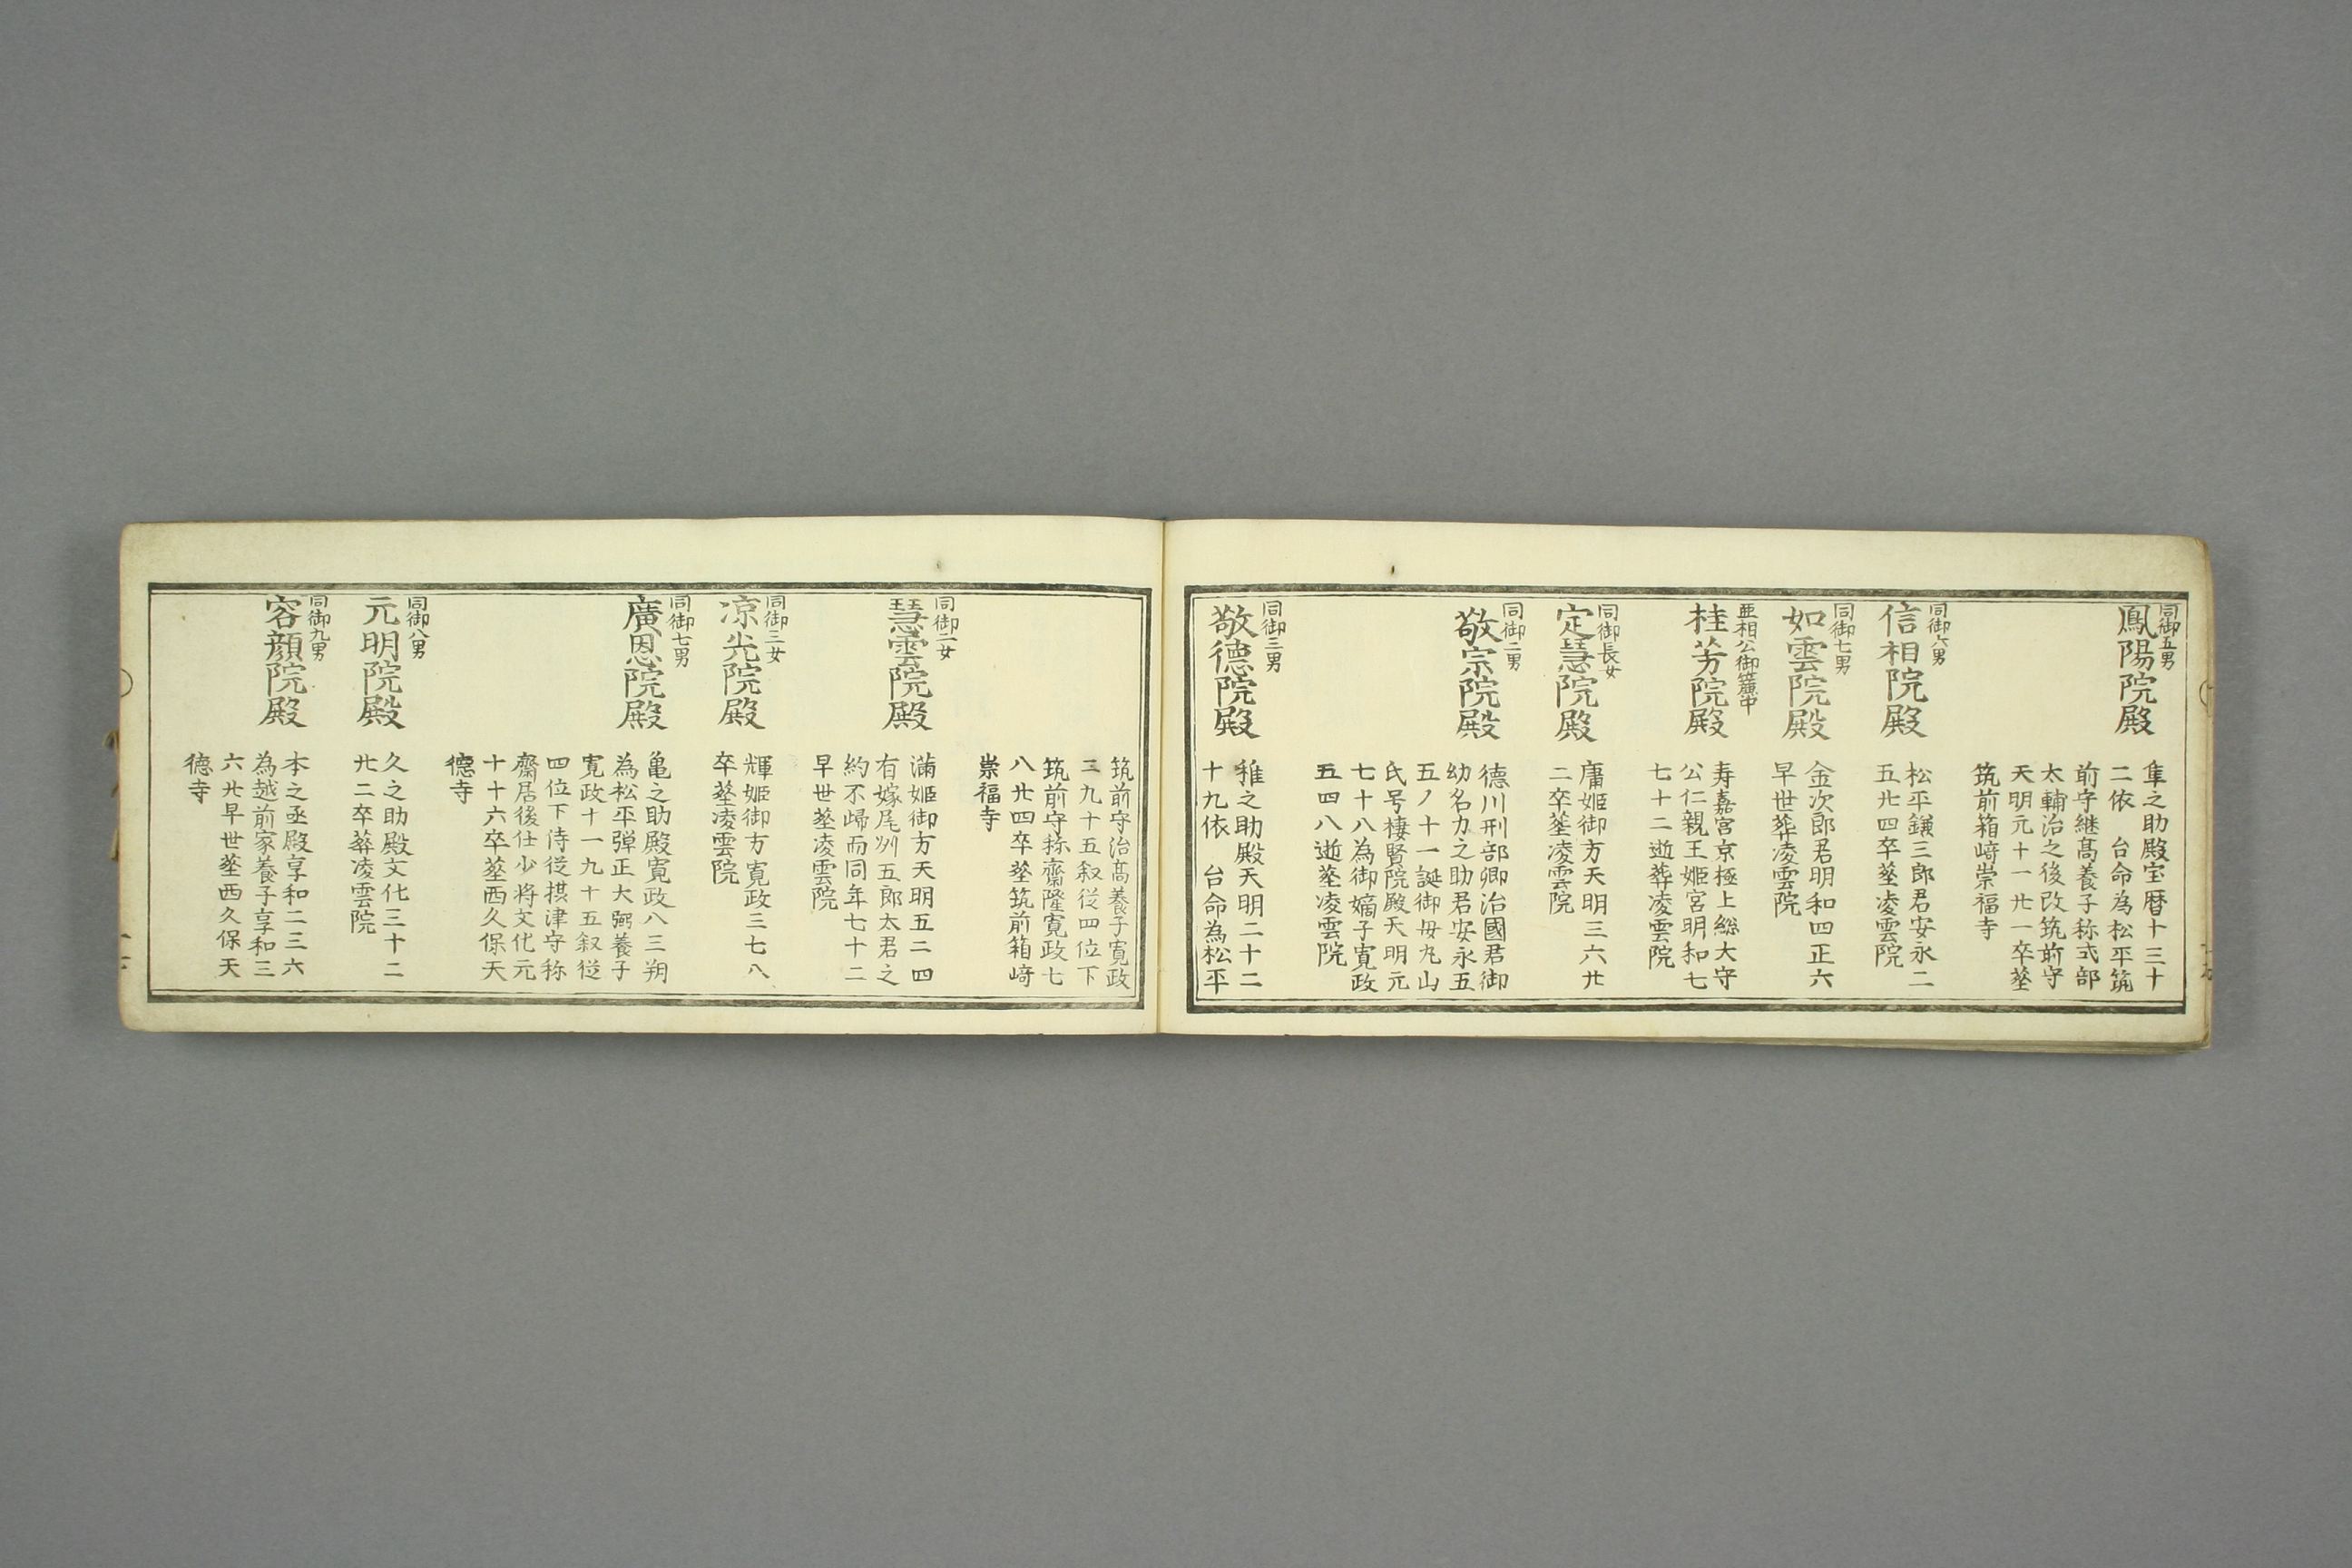 同御五男
鳳陽院殿
隼之助殿宝暦十三十
二依　台命為松平筑
前守継髙養子称式部
太輔治之後改筑前守
天明元十一廿一卒塟
筑前箱﨑崇福寺
同御六男
信相院殿
松平鎌三郎君安永二
五廿四卒塟凌雲院
同御七男
如雲院殿
金次郎君明和四正六
早世葬凌雲院
亜相公御簾中
桂芳院殿
寿嘉宮京極上総大守
公仁親王姫宮明和七
七十二逝葬凌雲院
同御長女
定慧院殿
庸姫御方天明三六廿
二卒塟凌雲院
同御二男
敬宗院殿
德川刑部卿治國君御
幼名力之助君安永五
五ノ十一誕御母丸山
氏号棲賢院殿天明元
七十八為御嫡子寛政
五四八逝塟凌雲院
同御三男
敬德院殿
雅之助殿天明二十二
十九依　台命為松平
筑前守治髙養子寛政
三九十五叙従四位下
筑前守称齋隆寛政七
八廿四卒塟筑前箱﨑
崇福寺
同御二女
慧雲院殿
満姫御方天明五二四
有嫁尾州五郎太君之
約不歸而同年七十二
早世塟凌雲院
同御三女
凉光院殿
輝姫御方寛政三七八
卒塟凌雲院
同御七男
廣恩院殿
亀之助殿寛政八三朔
為松平弾正大弼養子
寛政十一九十五叙従
四位下侍従摂津守称
齋居後仕少将文化元
十十六卒塟西久保天
德寺
同御八男
元明院殿
久之助殿文化三十二
廿二卒葬凌雲院
同御九男
容顔院殿
本之丞殿享和二三六
為越前家養子享和三
六廿早世塟西久保天
德寺